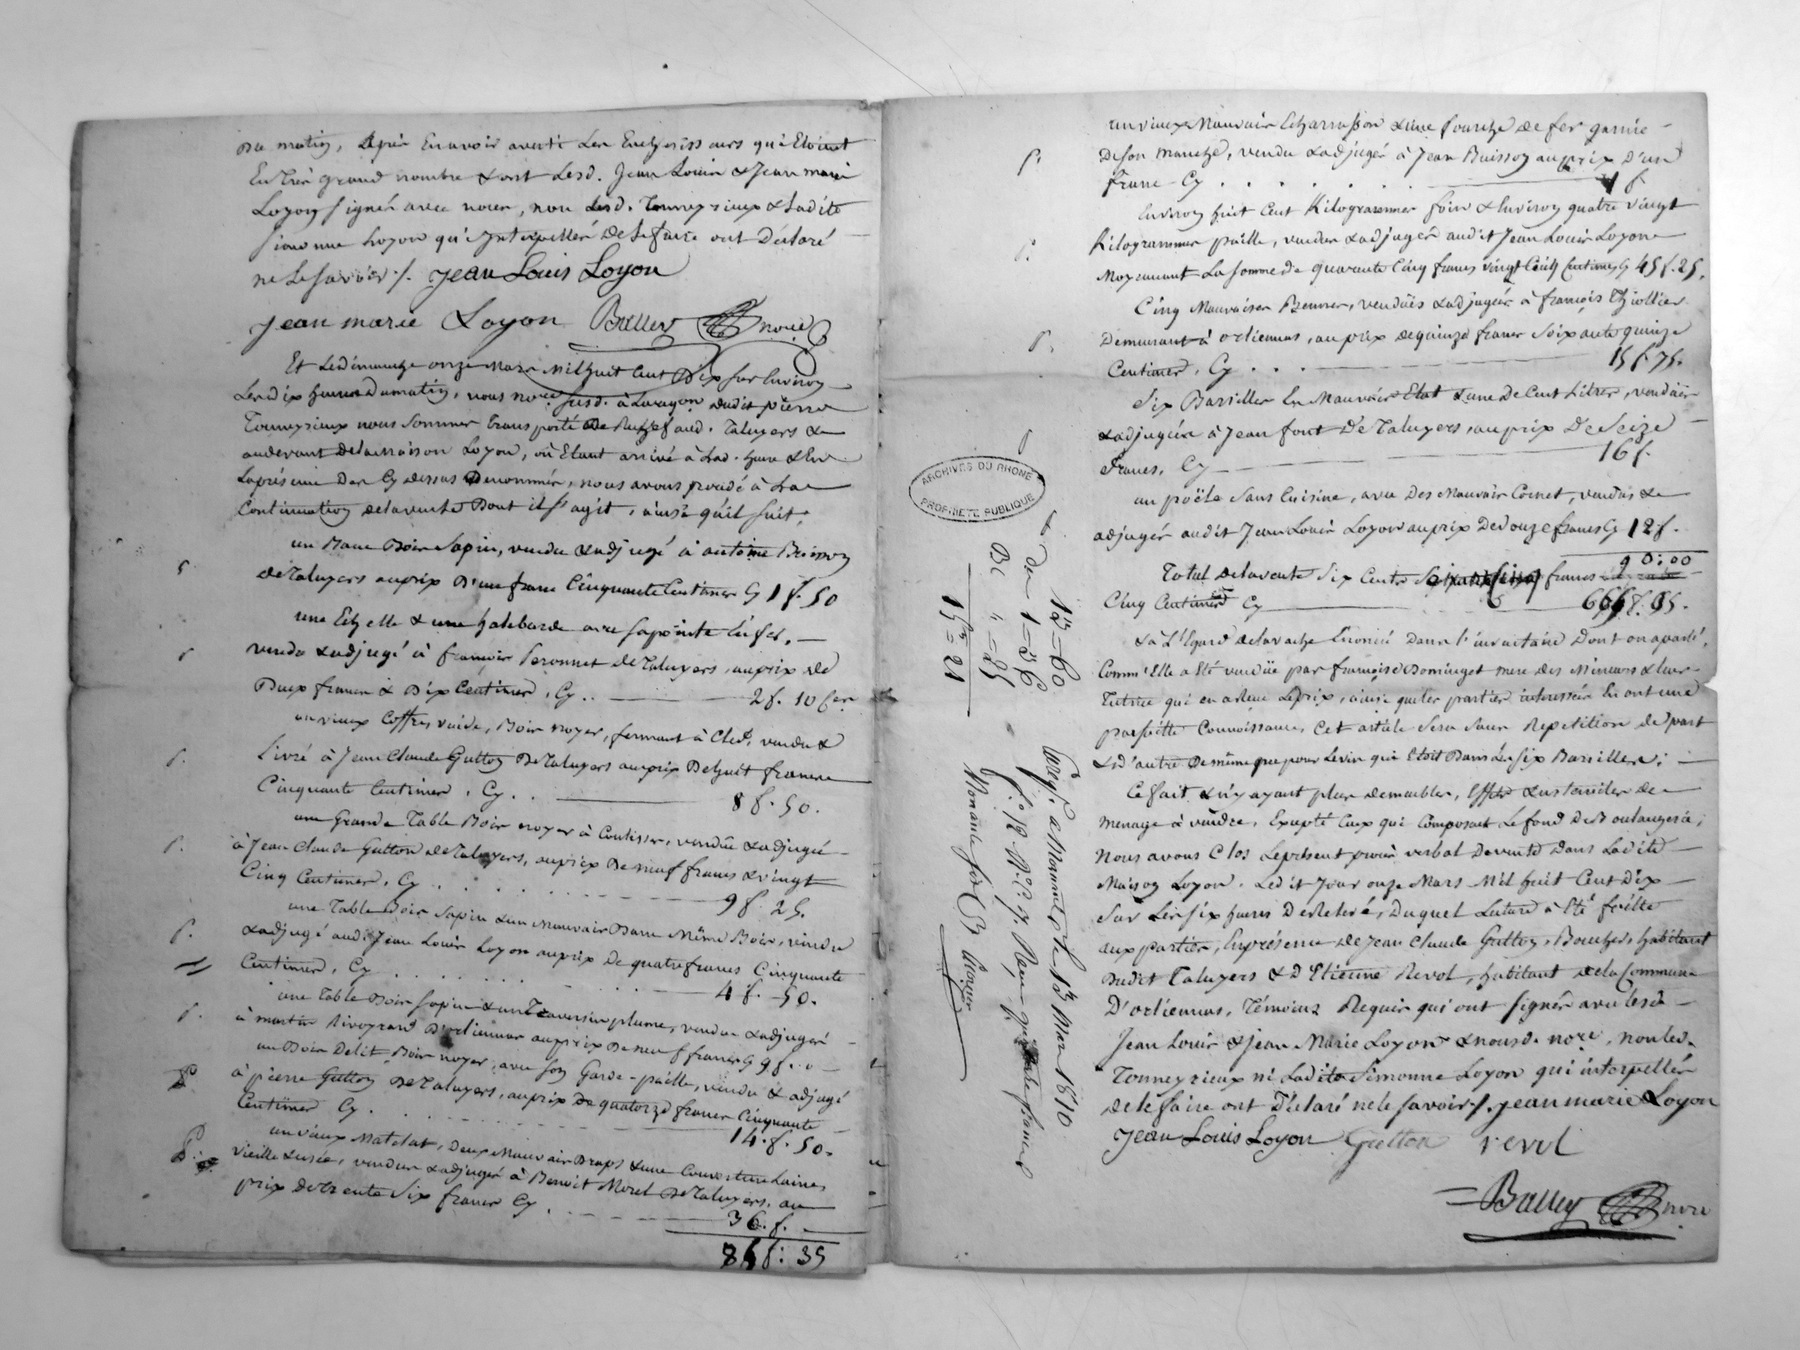 du matin, après en avoir averti les Encherisseurs qui Etoient
En Très grand nombre & ont lesd. Jean Louis & Jean marie
Loyon signé avec nous, non lesd. Tonneyrieux & Ladite
simonne Loyon qui Interpellés de le faire ont déclaré
ne le savoir ./. Jean Louis Loyon
Jean marie Loyon Balley nore
Et le dimanche onze Mars mil huit Cent Dix sur Environ
Les dix heures du matin, nous nore susd. à la requon dudit pierre
Tonneyrieux nous sommes transporté de audt. Taluyers &
audevant de la maison Loyon, où Etant arrivé à lad. heure & En
la présence des Cy dessus Denommés, nous avons procédé à la
Continuation de la vente Dont il s'agit, ainsi qu'il suit,
un Banc Bois Sapin, vendu & adjugé à antoine Buisson
de Taluyers au prix D'un franc Cinquante Centimes Cy 1 f. 50
une Echelle & une halebarde avec sa pointe En fer,
vendu & adjugé à françois Peronnet de Taluyers, au prix de
Deux francs & Dix Centimes, Cy . . 2 f. 10 Cen
un vieux Coffre, vuide, Bois noyer, fermant à Clef, vendu &
Livré à Jean Claude Gutton De Taluyers au prix De huit francs
Cinquante Centimes, Cy . . 8 f. 50.
une Grande Table Bois noyer à Coulisses, vendue & adjugée
à Jean Claude Gutton de Taluyers, au prix De neuf francs & vingt
Cinq Centimes, Cy . . . 9 f. 25.
une Table Bois Sapin & un Mauvais Banc Même Bois, vendu
& adjugé aud. Jean Louis Loyon au prix De quatre francs Cinquante
Centimes, Cy . . . 4 f. 50.
une Table Bois Sapin & un Traversin plume, vendu & adjugés
à martin Rivoyrand D'orliennas au prix De neuf francs Cy 9 f. 0
un Bois De lit, Bois noyer, avec son Garde-paille, vendu & adjugé
à pierre Gutton De Taluyers, au prix De quatorze francs Cinquante
Centimes Cy . . . 14. f. 50.
un vieux Matelat, Deux Mauvais Draps & une Couverture Laine,
vieille & usée, vendus & adjugés à Benoit Morel De Taluyers, au
prix De trente Six francs Cy . . . 36. f.
f: 35
un vieux Mauvais & une fourche de fer garnie
De son manche, vendu & adjugés à Jean Buisson au prix D'un
franc Cy . . . 1 f.
Environ huit Cent Kilogrammes foin & Environ quatre vingt
Kilogrammes paille, vendus & adjugés audit Jean Louis Loyon
Moyennant La Somme de quarante Cinq francs vingt Cinq Centimes Cy 45 f. 25.
Cinq Mauvaises Bennes, vendües & adjugées à françois Thiollier
Demeurant à orliennas, au prix de quinze francs Soixante quinze
Centimes, Cy . . . 15 f. 75.
Six Barilles En Mauvais Etat & une de Cent Litres, vendües
& adjugées à Jean font De Taluyers, au prix De Seize
francs, Cy 16 f.
un poële Sans Cuisine, avec Des Mauvais Cornet, vendus &
adjugés audit Jean Louis Loyon au prix De Douze francs Cy 12 f.
90:00
Total de la vente Six Cents francs
Cinq Centimes Cy
& à L'Egard de la vache Enoncée Dans l'inventaire Dont on a parlé,
Comme Elle a Eté vendüe par françoise Domingot mere des Mineurs & leur
Tutrice qui en a Reçu Le prix, ainsi que les parties intéressées En ont une
parfaite Connoissance, Cet article sera Sans Repetition de part
& d'autre De même que pour Le vin qui Etoit Dans Les Six Barilles.
Ce fait & n'y ayant plus de meubles, Effets & ustensiles de
Menage à vendre, Excepté Ceux qui Composent Le fond De Boulangerie,
Nous avons Clos Le présent procès verbal De vente Dans Ladite
Maison Loyon. Ledit Jour onze Mars Mil huit Cent Dix
Sur Les Six heures De Relevé, Duquel Lecture à Eté faitte
aux parties, En présence de Jean Claude Gutton, Boucher, habitant
Dudit Taluyers & D'Etienne Revol, habitant de la Commune
D'orliennas, Témoins Requis qui ont signés avec lesd.
Jean Louis & Jean Marie Loyon & nousd. nore, non led.
Tonneyrieux ni Ladite Simonne Loyon qui interpellés
de le faire ont Déclaré ne le savoir ./. Jean marie Loyon
Jean Louis Loyon Gutton revol
Balley nore
ARCHIVES DU RHONE
PROPRIÉTÉ PUBLIQUE
12=60
1=26
"=25
Enregé. à Mornant le 13 Mars 1810